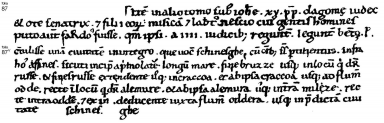 87
Ite in alio tomo sub iohe .xv. pp. dagome iudex
& ote senatrix. 7 filii eorũ. misica 7 lãbt nescio cuius gentis homines
puto aute sardos fuisse. qm ipsi a .iiii. iudicib; regunt. legunt beto p.
87
contulisse unã ciuitate in integro. que uoc schinesghe. cũ oib; suis ptinentiis. infra
hos affines. sicuti incipit a primo latere longũ mare. fine bruzze usq; in locũ qd dr
russe. & fines russe extendente usq; in craccoa. & ab ipsa craccoa usq; ad flum
oddere. recte in locũ qd dr alemure. & ab ipsa alemura usq; in terrã milze. rec
te intra oddere. & exin deducente iuxta flumen oddera. usq; in pdictã ciui
tate schines ghe